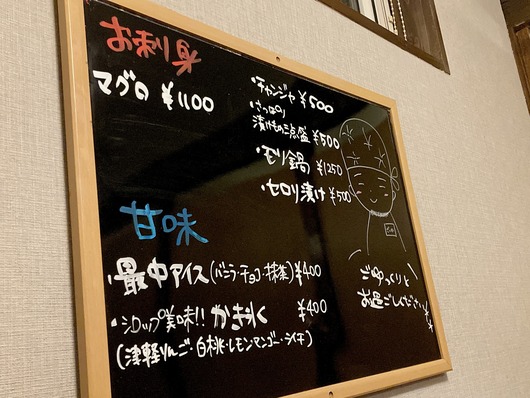 お刺身
マグロ ¥1100
・チャンジャ ¥500
・さっぱり
漬けもの三点盛 ¥500
・モツ鍋 ¥1250
・セロリ漬け ¥500
甘味
・最中アイス(バニラ・チョコ・抹茶)¥400
・シロップ美味!! かき氷 ¥400
(津軽りんご・白桃・レモン・マンゴー・ライチ)
ごゆっくりと
お過ごしください